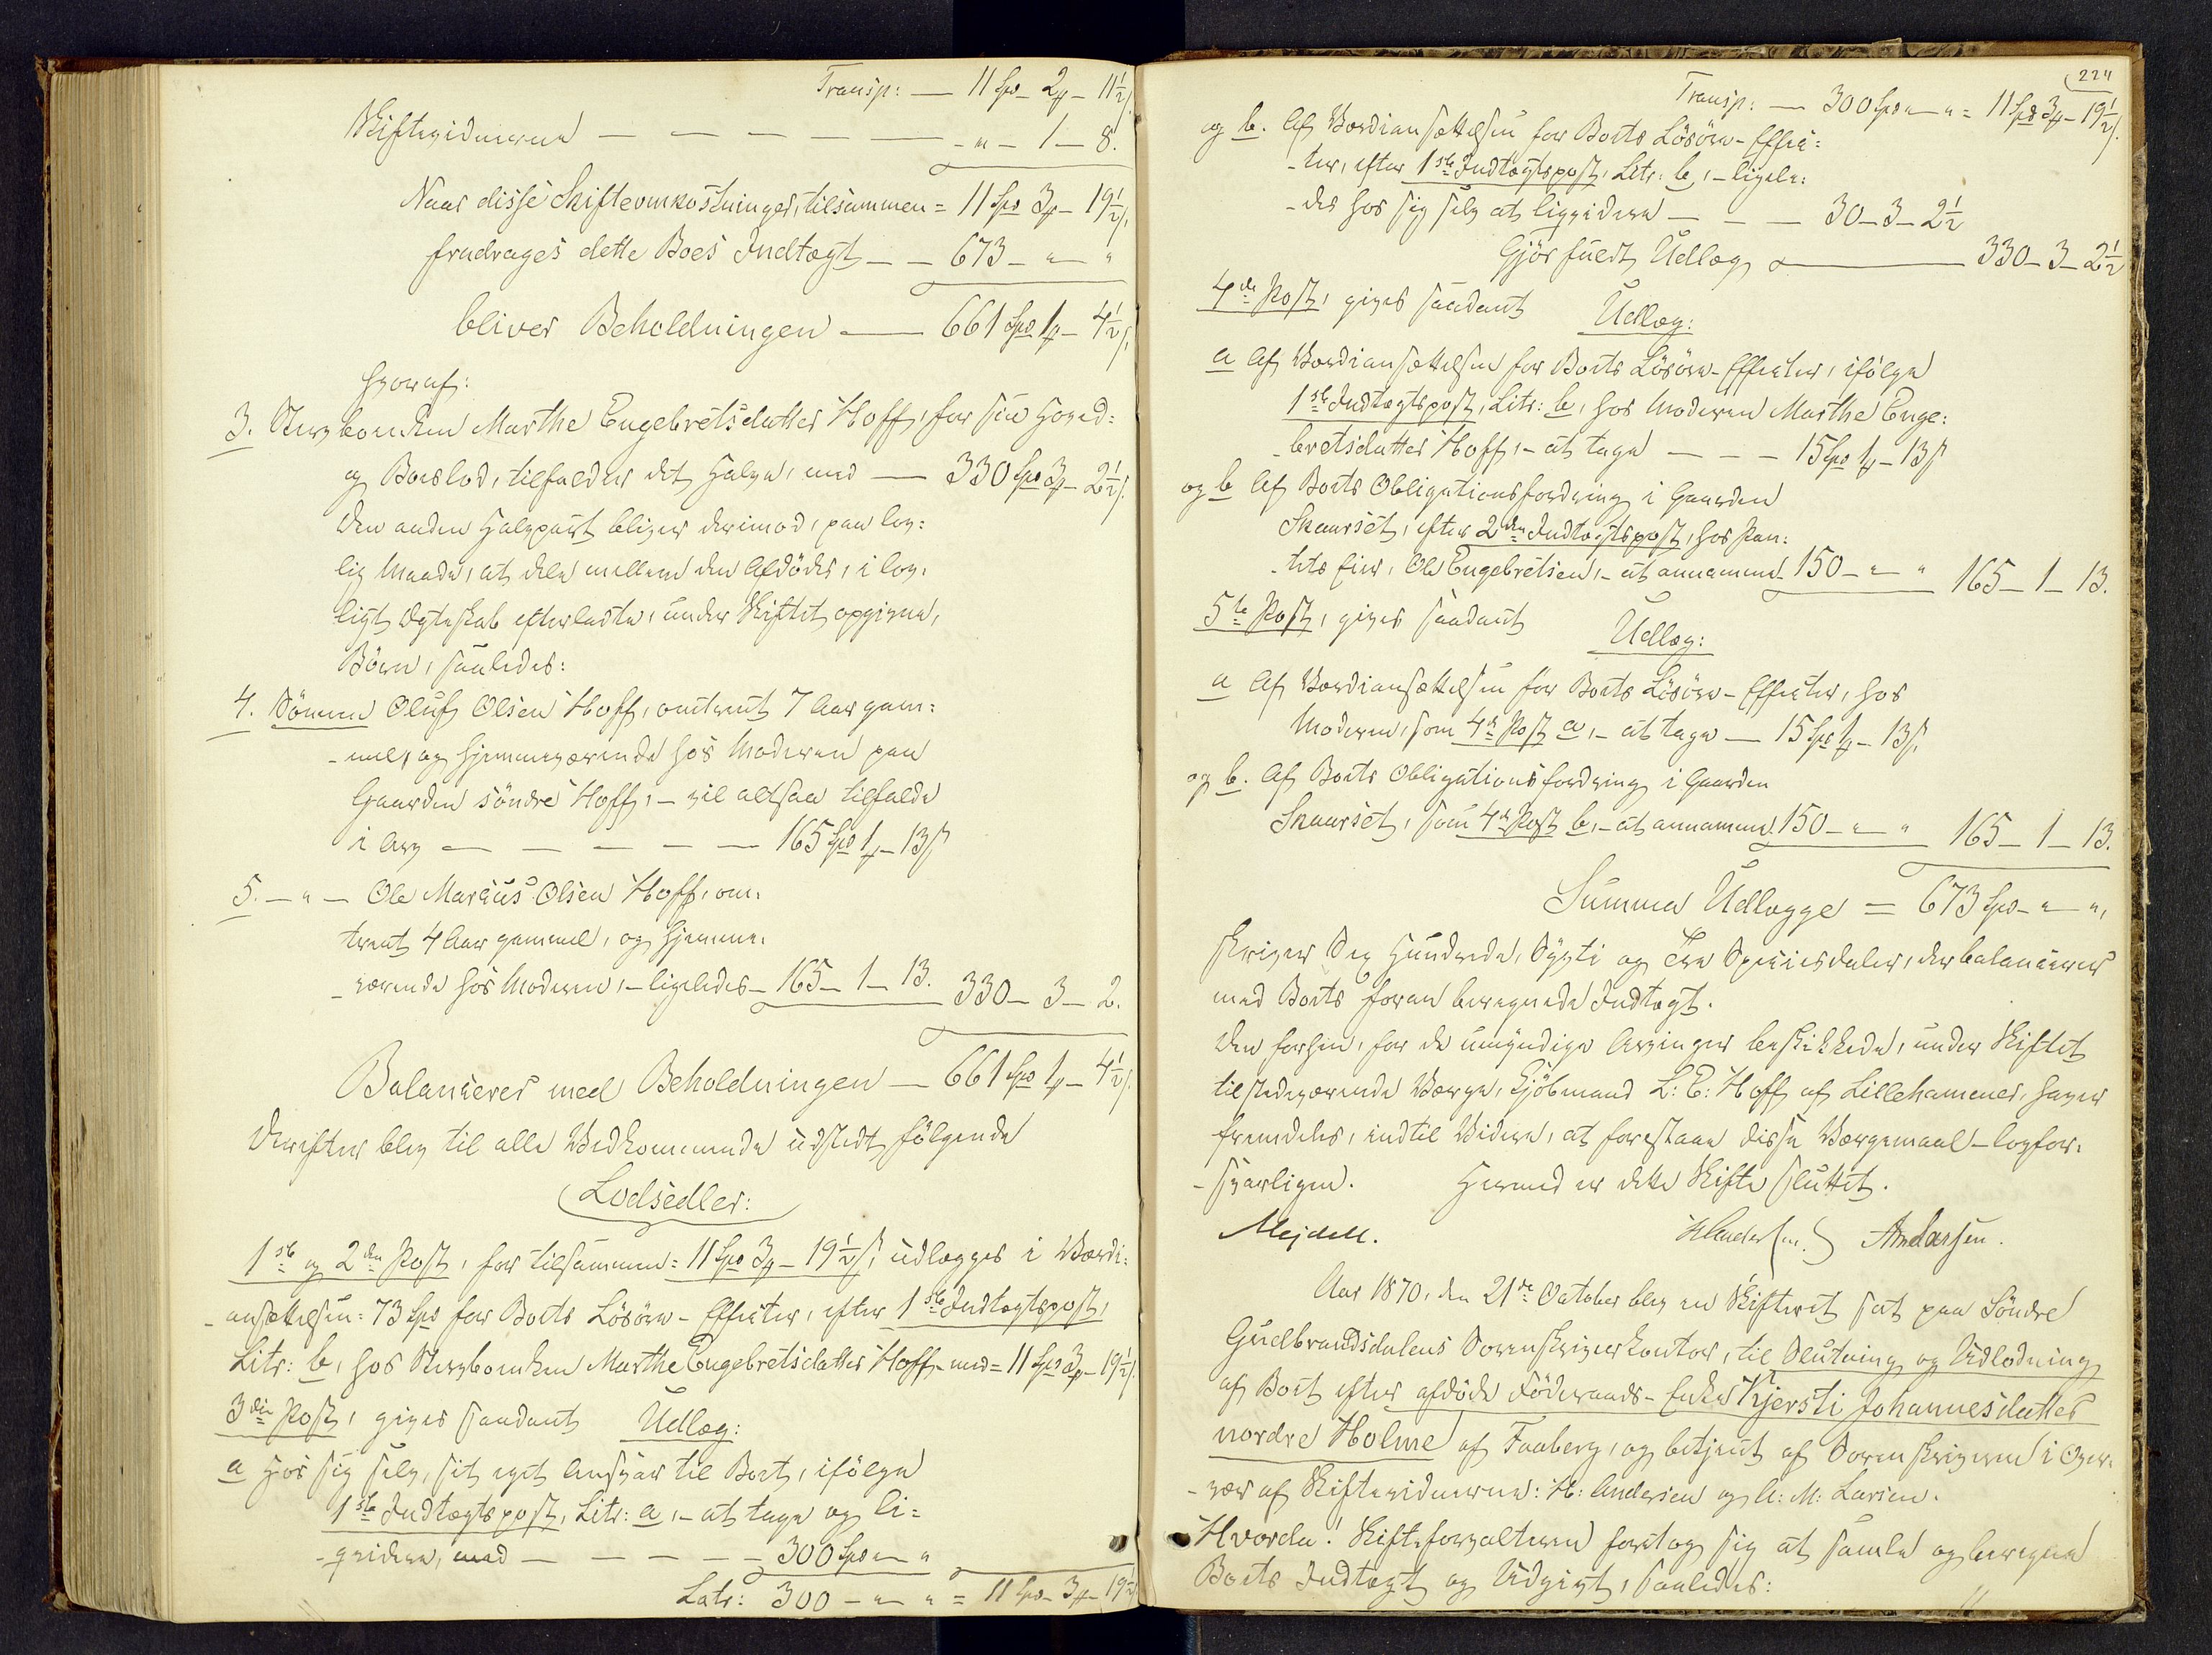 Transp: — 11 Spd – 2 ₰ – 11½ ß.
Skiftevidnerne — — — — — — „ – 1 – 8.
Naar disse Skifteomkostninger, tilsammen = 11 Spd 3 ₰ – 19½ ß,
fradrages dette Boes Indtægt — — 673 – „ – „
bliver Beholdningen — 661 Spd 1 ₰ – 4½ ß,
hvoraf:
3. Stervboenken Marthe Engebretsdatter Hoff, for sin Hoved:
og Boeslod, tilfalder det Halve, med — 330 Spd 3 ₰ – 2½ ß.
Den anden Halvpart bliver derimod, paa lov:
lig Maade, at dele mellem den Afdødes, i lov:
ligt Ægteskab efterladte, under Skiftet opgivne,
Børn, saaledes:
4. Sönnen Oluf Olsen Hoff, omtrent 7 Aar gam:
-mel, og hjemmeværende hos Moderen paa
Gaarden söndre Hoff, – vil altsaa tilfalde
i Arv — — — — — 165 Spd 1 ₰ – 13 ß
5. – „ – Ole Marius Olsen Hoff, om:
trent 4 Aar gammel, og hjemme:
-værende hos Moderen, – ligeledes – 165 – 1 – 13. 330 – 3 – 2.
Balancerer med Beholdningen — 661 Spd 1 ₰ – 4½ ß.
Derefter blev til alle Vedkommende udstedt følgende
Lodsedler:
1ste og 2den Post, for tilsammen = 11 Spd 3 ₰ – 19½ ß, udlægges i Værdi:
-ansættelsen = 73 Spd for Boets Lösöre-Effecter, efter 1ste Indtægtspost,
Litr: b, hos Stervboenken Marthe Engebretsdatter Hoff, med = 11 Spd 3 ₰ – 19½ ß.
3die Post, gives saadant Udlæg:
a Hos sig selv, sit eget Ansvar til Boet, ifölge
1ste Indtægtspost, Litr: a, – at tage og li=
-qvidere, med — — — — — 300 Spd „ – „
Latr: 300 – „ – „ = 11 Spd – 3 ₰ – 19½
224
Transp: — 300 Spd „ – „ = 11 Spd 3 ₰ – 19½ ß.
og b. Af Værdiansættelsen for Boets Lösöre-Effec:
-ter, efter 1ste Indtægtspost, Litr: b, – ligele:
-des hos sig selv at liqvidere — — — 30 – 3 – 2½
Gjör fuldt Udlæg — 330 – 3 – 2½
4de Post, gives saadant Udlæg:
a Af Værdiansættelsen for Boets Lösöre-Effecter, ifölge
1ste Indtægtspost, Litr: b, hos Moderen Marthe Enge:
-bretsdatter Hoff, – at tage — — — 15 Spd 1 ₰ – 13 ß
og b Af Boets Obligationsfordring i Gaarden
Skaarsét, efter 2den Indtægtspost, hos Pan:
-tets Eier, Ole Engebretsen, – at annamme 150 – „ – „ 165 – 1 – 13.
5te Post, gives saadant Udlæg:
a Af Værdiansættelsen for Boets Lösöre-Effecter, hos
Moderen, som 4de Post a, – at tage — 15 Spd 1 ₰ – 13 ß,
og b. Af Boets Obligationsfordring i Gaarden
Skaarsét, som 4de Post b, – at annamme 150 – „ – „ 165 – 1 – 13.
Summa Udlægge = 673 Spd – „ – „,
skriver Sex Hundrede, Sytti og Tre Speciesdaler, der balancerer
med Boets foran beregnede Indtægt.
Den forhen, for de umyndige Arvinger beskikkede, under Skiftet
tilstedeværende Værge, Kjöbmand L: E: Hoff af Lillehammer, haver
fremdeles, indtil Videre, at forestaae disse Værgemaal – lovfor:
-svarligen. Hermed er dette Skifte sluttet.
Mejdell. HAndersen. AMLarsen.
Aar 1870, den 21de October blev en Skifteret sat paa Söndre
Gudbrandsdalens Sorenskriverkontor, til Slutning og Udlodning
af Boet efter afdöde Föderaads-Enke Kjersti Johannesdatter
nordre Holme af Faaberg, og betjent af Sorenskriveren i Over:
-vær af Skiftevidnerne: H: Andersen og A: M: Larsen.
Hvorda! Skifteforvalteren foretog sig at samle og beregne
Boets Indtægt og Udgivt, saaledes: